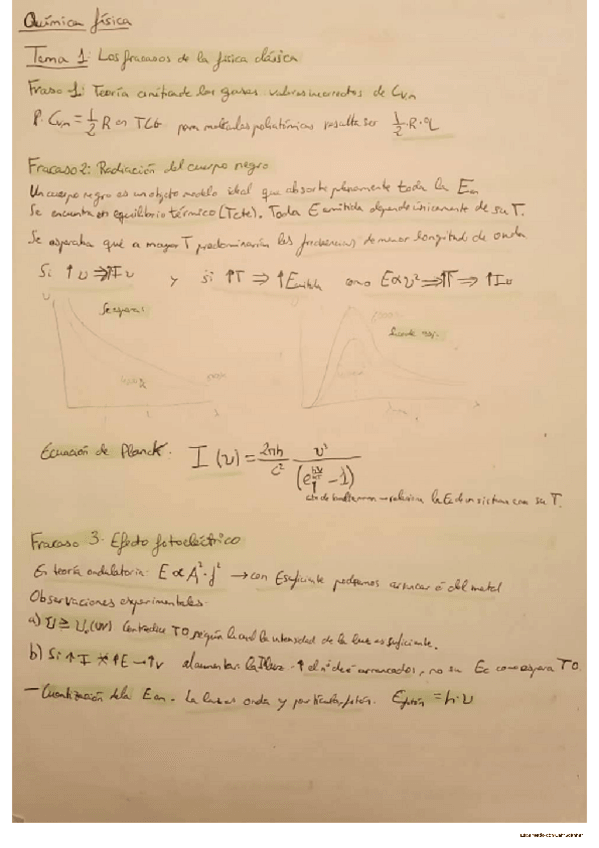 Química física
Tema 1: Los fracasos de la física clásica
Fraso 1: Teoría cinética de los gases. valores incorrectos de Cv,m
P. Cv,m = 1/2 R en TCG para moléculas poliatómicas resulta ser 1/2 · R · q
Fracaso 2: Radiación del cuerpo negro
Un cuerpo negro es un objeto modelo ideal que absorbe plenamente toda la Eem
Se encuentra en equilibrio térmico (Tcte). Toda E emitida depende únicamente de su T.
Se esperaba que a mayor T predominarían las frecuencias de menor longitud de onda
Si ↑ υ ⇒ ↑I υ y si ↑T ⇒ ↑E como E∝υ² ⇒ ↑T ⇒ ↑Iυ
υ Se espera:
λ
Ecuación de Planck: I (υ) = 2πh/c² υ³/(e^(hυ/kT) - 1)
cte de boltzmann → relaciona la E de un sistema con su T.
Fracaso 3. Efecto fotoeléctrico
En teoría ondulatoria: E ∝ A² · f² → con E suficiente podremos arrancar ē del metal
Observaciones experimentales:
a) υ ≥ υo (UV) Contradice TO según la cual la intensidad de la luz es suficiente.
b) Si ↑ I ↑E → ↑v al aumentar la I luz ↑ el nº de ē arrancados, no su Ec como espera TO.
- Cuantización de la Eem. La luz es onda y partícula, fotón. Efotón = h · υ